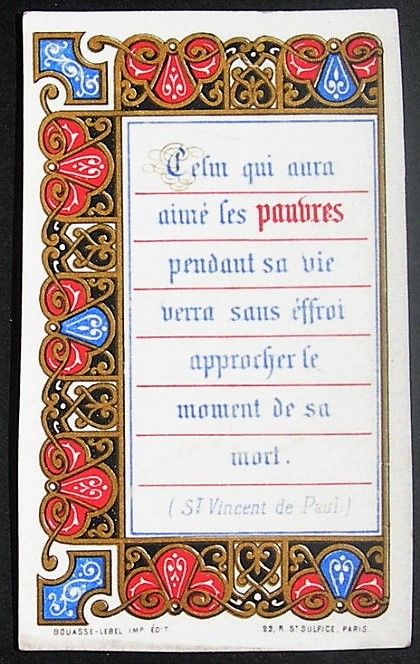 Celui qui aura
aimé les pauvres
pendant sa vie
verra sans éffroi
approcher le
moment de sa
mort.
(St Vincent de Paul.)
BOUASSE-LEBEL IMP. ÉDIT.
29, R. St SULPICE, PARIS.